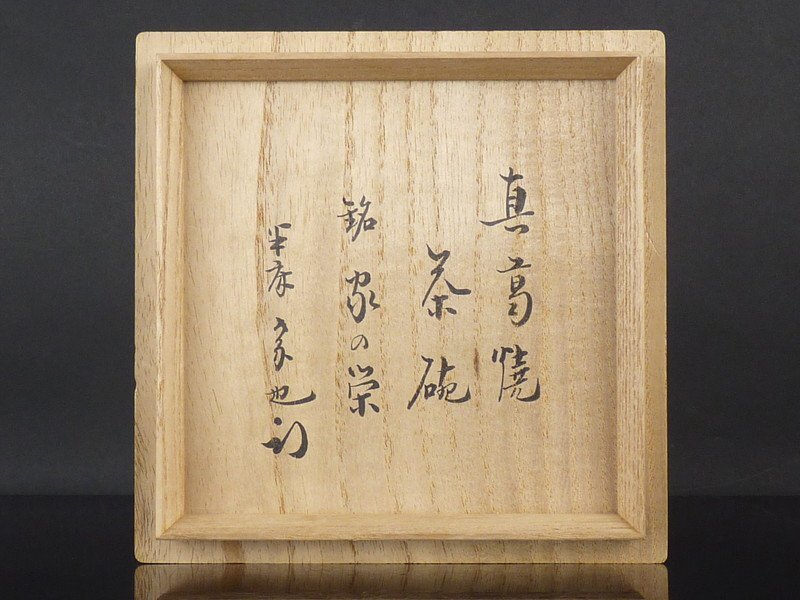 真葛焼
茶碗
銘 家の栄
半床